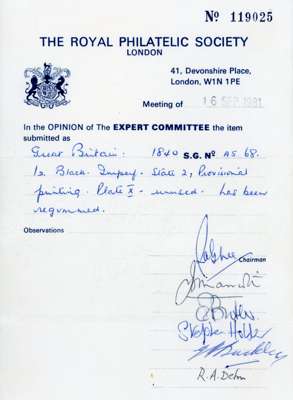 Nº 119025
THE ROYAL PHILATELIC SOCIETY
LONDON
41, Devonshire Place,
London, W1N 1PE
Meeting of 16 SEP 1981
In the OPINION of The EXPERT COMMITTEE the item
submitted as
Great Britain. 1840 S.G. Nº AS 68.
1d Black. Imperf. State 2, Provisional
printing. Plate X. unused. has been
regummed.
Observations
Chairman
Stephen Holder
R.A. Dehn